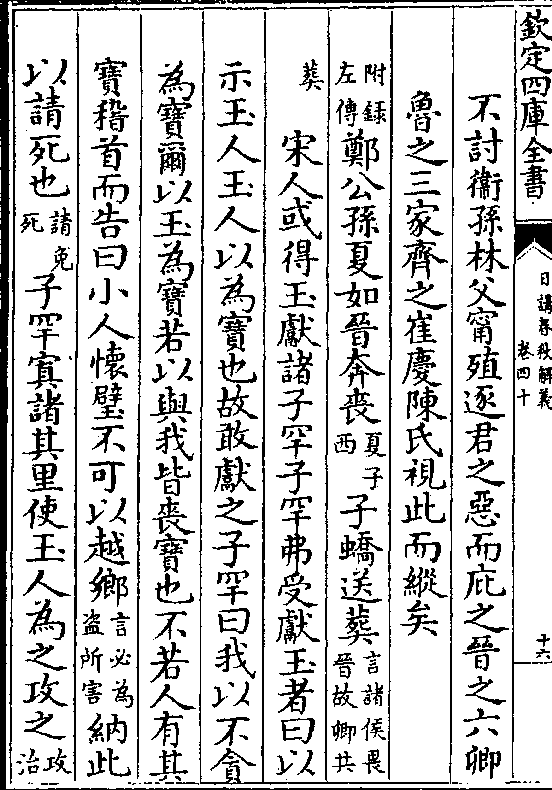 欽定四庫全書
日講春秋解義
卷四十
十六
不討衞孫林父甯殖逐君之惡而庇之晉之六卿
魯之三家齊之崔慶陳氏視此而縱矣
附録左傳鄭公孫夏如晉奔喪夏子西子蟜送葬言諸侯畏晉故卿共
葬宋人或得玉獻諸子罕子罕弗受獻玉者曰以
示玉人玉人以為寶也故敢獻之子罕曰我以不貪
為寶爾以玉為寶若以與我皆喪寶也不若人有其
寶稽首而告曰小人懷璧不可以越鄉言必為盗所害納此
以請死也請免死子罕寘諸其里使玉人為之攻之攻治